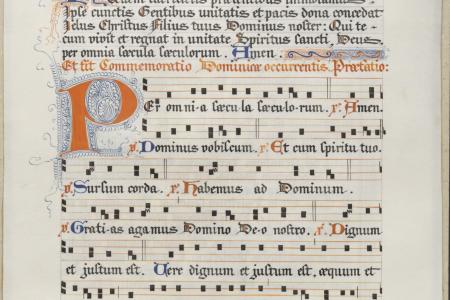 Ipse cunctis Gentibus unitatis et pacis dona concedat
Jesus Christus Filius tuus Dominus noster: Qui te-
cum vivit et regnat in unitate Spiritus sancti, Deus
per omnia sæcula sæculorum. Amen.
Et fit Commemoratio Dominicæ occurrentis. Præfatio:
Per omni-a sæcu-la sæculo-rum. ℟. Amen.
℣. Dominus vobiscum. ℟. Et cum spiritu tuo.
℣. Sursum corda. ℟. Habemus ad Dominum.
℣. Grati-as agamus Domino De-o nostro. ℟. Dignum
et justum est. Vere dignum et justum est, æquum et